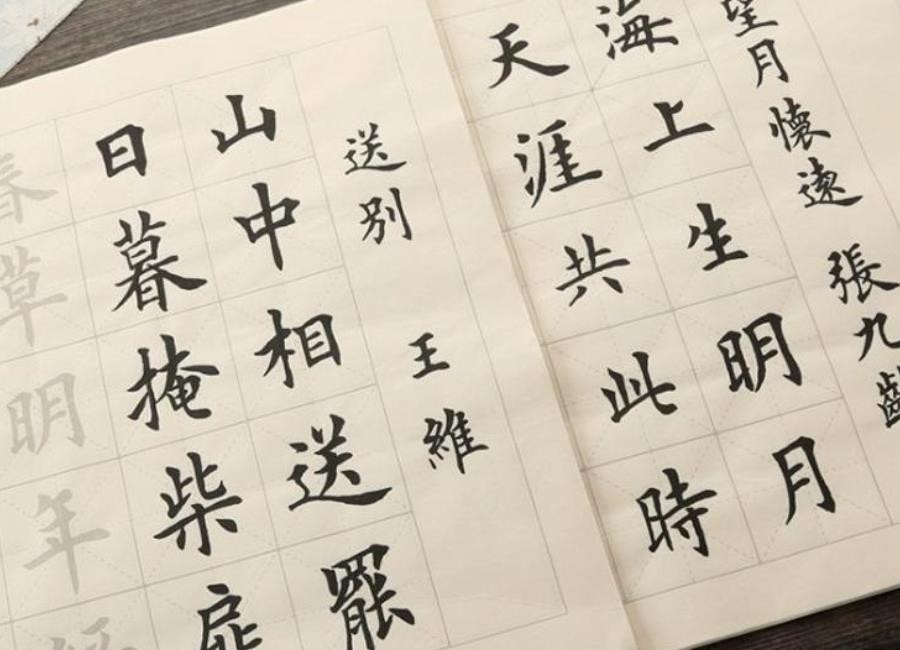 望月懷遠 張九齡
海上生明月
天涯共此時
送別 王維
山中相送罷
日暮掩柴扉
春草明年綠